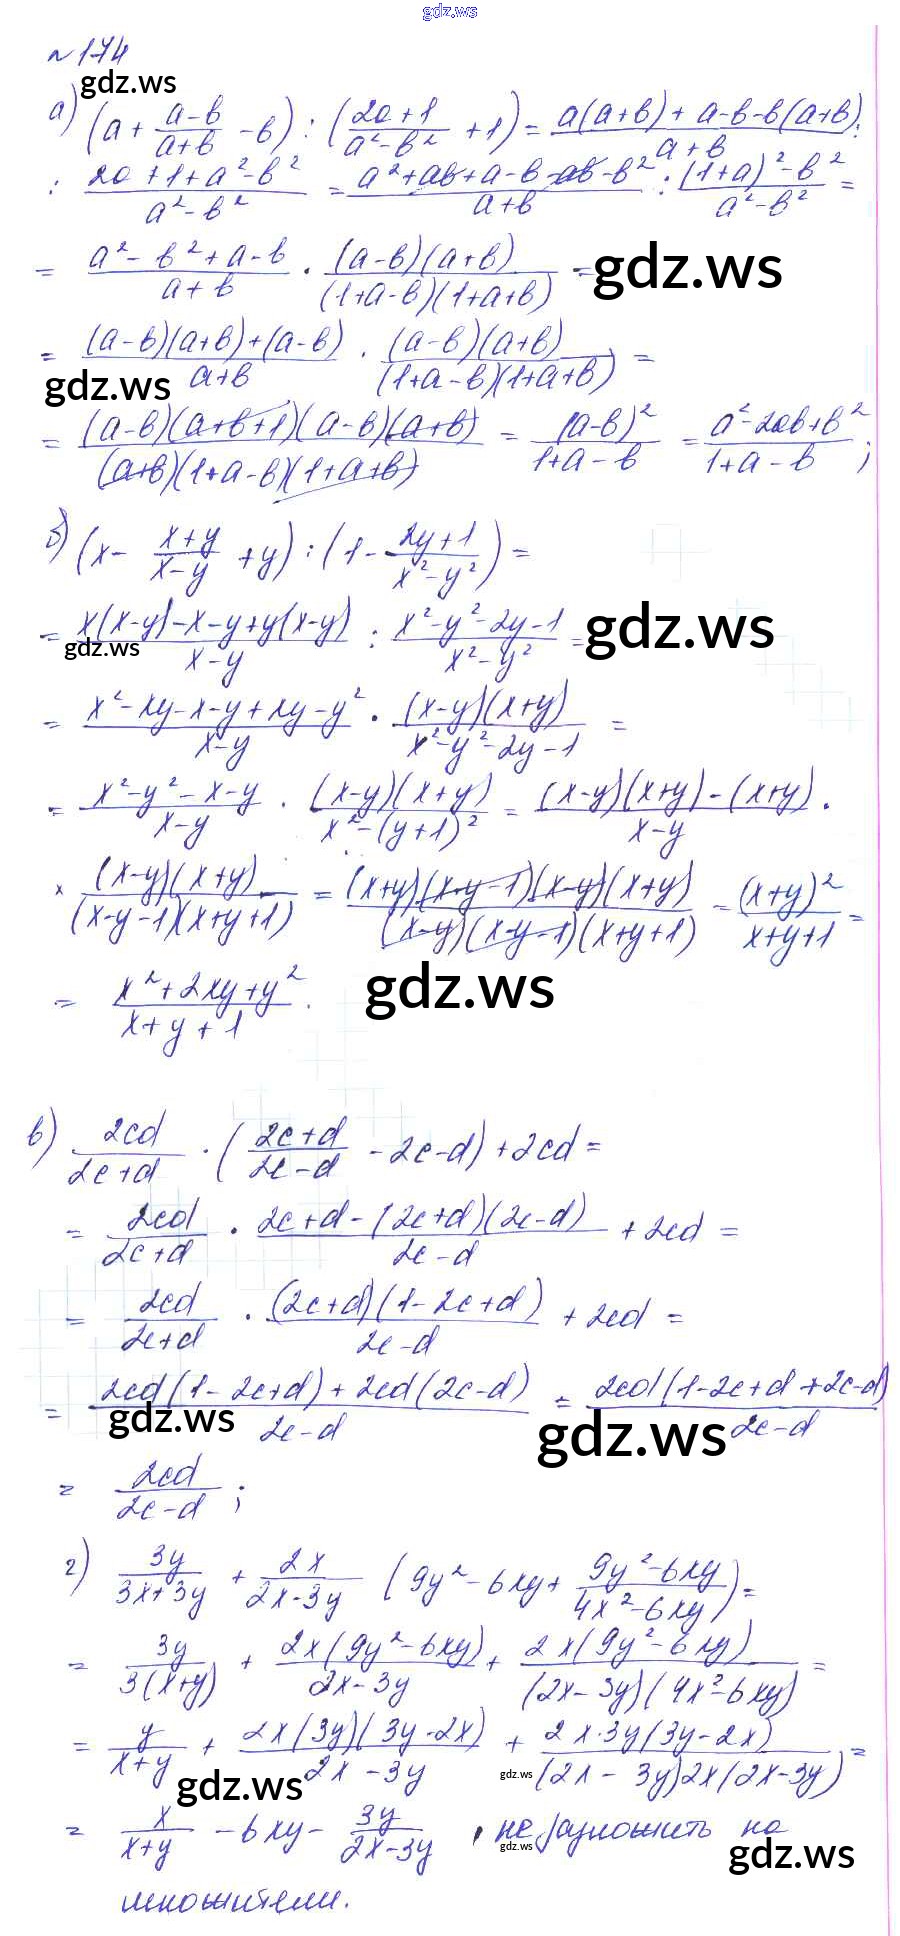 gdz.ws
№174
gdz.ws
а) (a + (a-b)/(a+b) - b) : ((2a+1)/(a²-b²) + 1) = (a(a+b) + a-b-b(a+b))/(a+b) :
: (2a+1+a²-b²)/(a²-b²) = (a²+ab+a-b-ab-b²)/(a+b) : ((1+a)²-b²)/(a²-b²) =
= (a²-b²+a-b)/(a+b) · ((a-b)(a+b))/((1+a-b)(1+a+b)) =
gdz.ws
= ((a-b)(a+b)+(a-b))/(a+b) · ((a-b)(a+b))/((1+a-b)(1+a+b)) =
gdz.ws
= ((a-b)(a+b+1)(a-b)(a+b))/((a+b)(1+a-b)(1+a+b)) = (a-b)²/(1+a-b) = (a²-2ab+b²)/(1+a-b) ;
б) (x - (x+y)/(x-y) + y) : (1 - (2y+1)/(x²-y²)) =
= (x(x-y)-x-y+y(x-y))/(x-y) : (x²-y²-2y-1)/(x²-y²) =
gdz.ws
gdz.ws
= (x²-xy-x-y+xy-y²)/(x-y) · ((x-y)(x+y))/(x²-y²-2y-1) =
= (x²-y²-x-y)/(x-y) · ((x-y)(x+y))/(x²-(y+1)²) = ((x-y)(x+y)-(x+y))/(x-y) ·
× ((x-y)(x+y))/((x-y-1)(x+y+1)) = ((x+y)(x-y-1)(x-y)(x+y))/((x-y)(x-y-1)(x+y+1)) = (x+y)²/(x+y+1) =
= (x²+2xy+y²)/(x+y+1) .
gdz.ws
в) 2cd/(2c+d) · ((2c+d)/(2c-d) - 2c-d) + 2cd =
= 2cd/(2c+d) · (2c+d-(2c+d)(2c-d))/(2c-d) + 2cd =
= 2cd/(2c+d) · ((2c+d)(1-2c+d))/(2c-d) + 2cd =
= (2cd(1-2c+d)+2cd(2c-d))/(2c-d) = (2cd(1-2c+d+2c-d))/(2c-d)
gdz.ws
gdz.ws
= 2cd/(2c-d) ;
г) 3y/(3x+3y) + 2x/(2x-3y) (9y²-6xy+ (9y²-6xy)/(4x²-6xy)) =
= 3y/(3(x+y)) + (2x(9y²-6xy))/(2x-3y) + (2x(9y²-6xy))/((2x-3y)(4x²-6xy)) =
= y/(x+y) + (2x(3y)(3y-2x))/(2x-3y) + (2x·3y(3y-2x))/((2x-3y)2x(2x-3y)) =
gdz.ws
gdz.ws
= x/(x+y) - 6xy - 3y/(2x-3y) , не разложить на
gdz.ws
gdz.ws
множители.